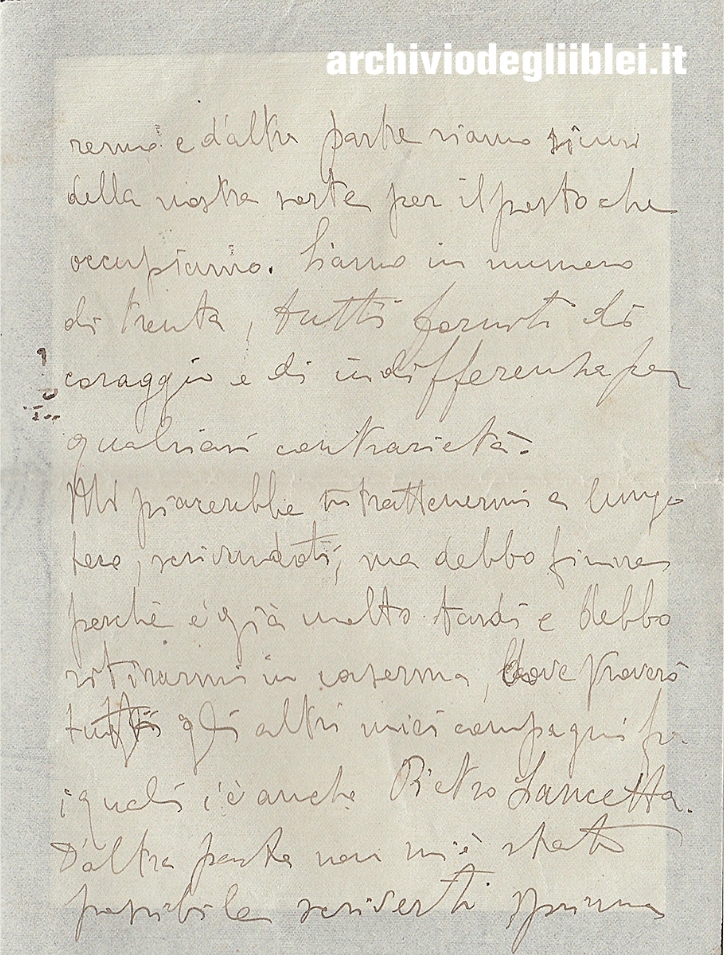 archiviodegliiblei.it
remo e d'altra parte siamo sicuri
della nostra sorte per il posto che
occupiamo. Siamo in numero
di trenta, tutti forniti di
coraggio e di indifferenza per
qualsiasi contrarietà.
Mi piacerebbe intrattenermi a lungo
teco, scrivendoti, ma debbo finire
perchè è già molto tardi e debbo
ritirarmi in caserma, dove troverò
tutti gli altri miei compagni fra
i quali c'è anche Pietro Lancetta.
D'altra parte non mi è stato
possibile scriverti prima